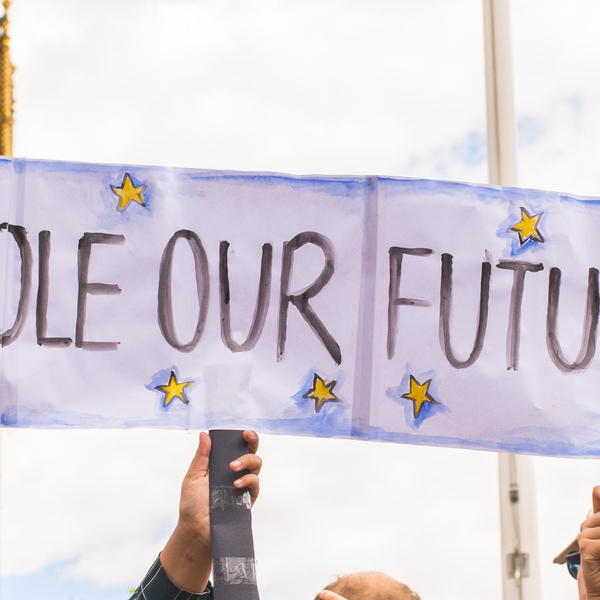 OLE OUR FUTU